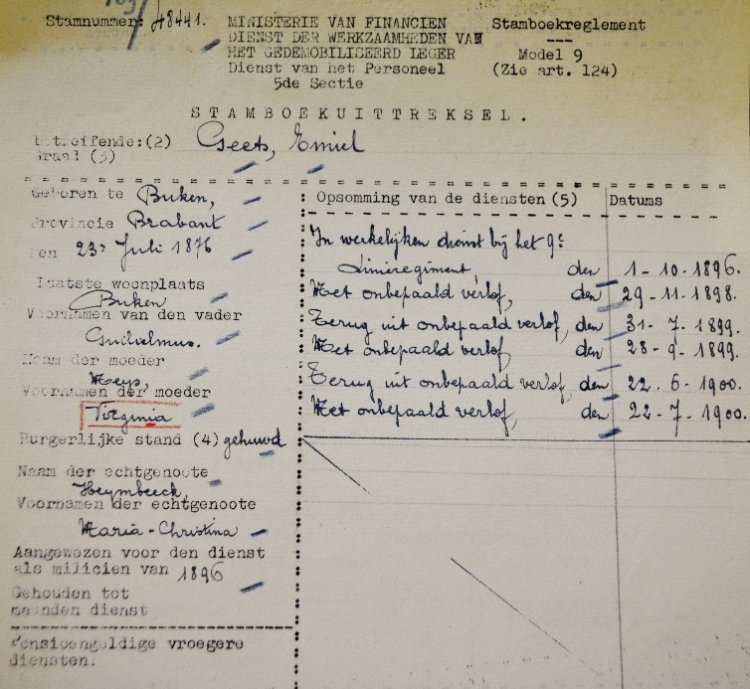 Stamnummer: 48441.
MINISTERIE VAN FINANCIEN
DIENST DER WERKZAAMHEDEN VAN
HET GEDEMOBILISEERD LEGER
Dienst van het Personeel
5de Sectie
Stamboekreglement
Model 9
(Zie art. 124)
STAMBOEKUITTREKSEL.
Betreffende:(2) Geets, Emiel
Graad (3)
Geboren te Buken,
Provincie Brabant
den 23n Juli 1876
Laatste woonplaats
Buken
Voornamen van den vader
Guilielmus.
Naam der moeder
Heys,
Voornamen der moeder
Virginia
Burgerlijke stand (4) gehuwd
Naam der echtgenoote
Heymbeeck,
Voornamen der echtgenoote
Maria-Christina
Aangewezen voor den dienst
als milicien van 1896
Gehouden tot
maanden dienst
Pensioengeldige vroegere
diensten.
Opsomming van de diensten (5) Datums
In werkelijken dienst bij het 9e
Linieregiment, den 1-10-1896.
Met onbepaald verlof, den 29-11-1898.
Terug uit onbepaald verlof, den 31-7-1899.
Met onbepaald verlof, den 28-9-1899.
Terug uit onbepaald verlof, den 22.6-1900.
Met onbepaald verlof, den 22-7-1900.